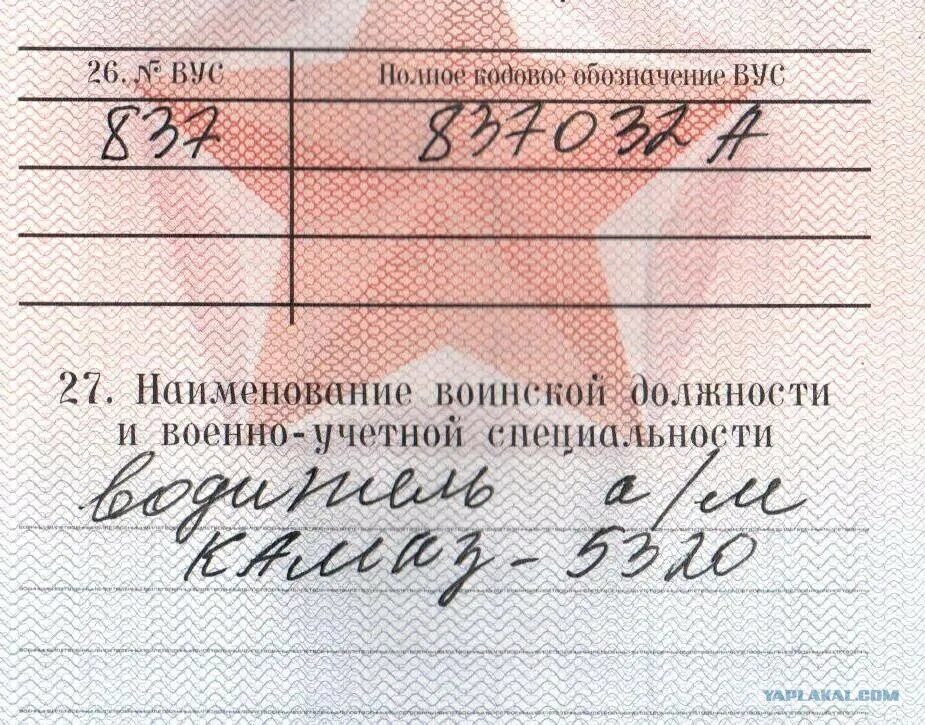 26. № ВУС Полное кодовое обозначение ВУС
837 837032 А
27. Наименование воинской должности
и военно-учетной специальности
водитель а/м
КАМАЗ - 5320
YAPLAKAL.COM